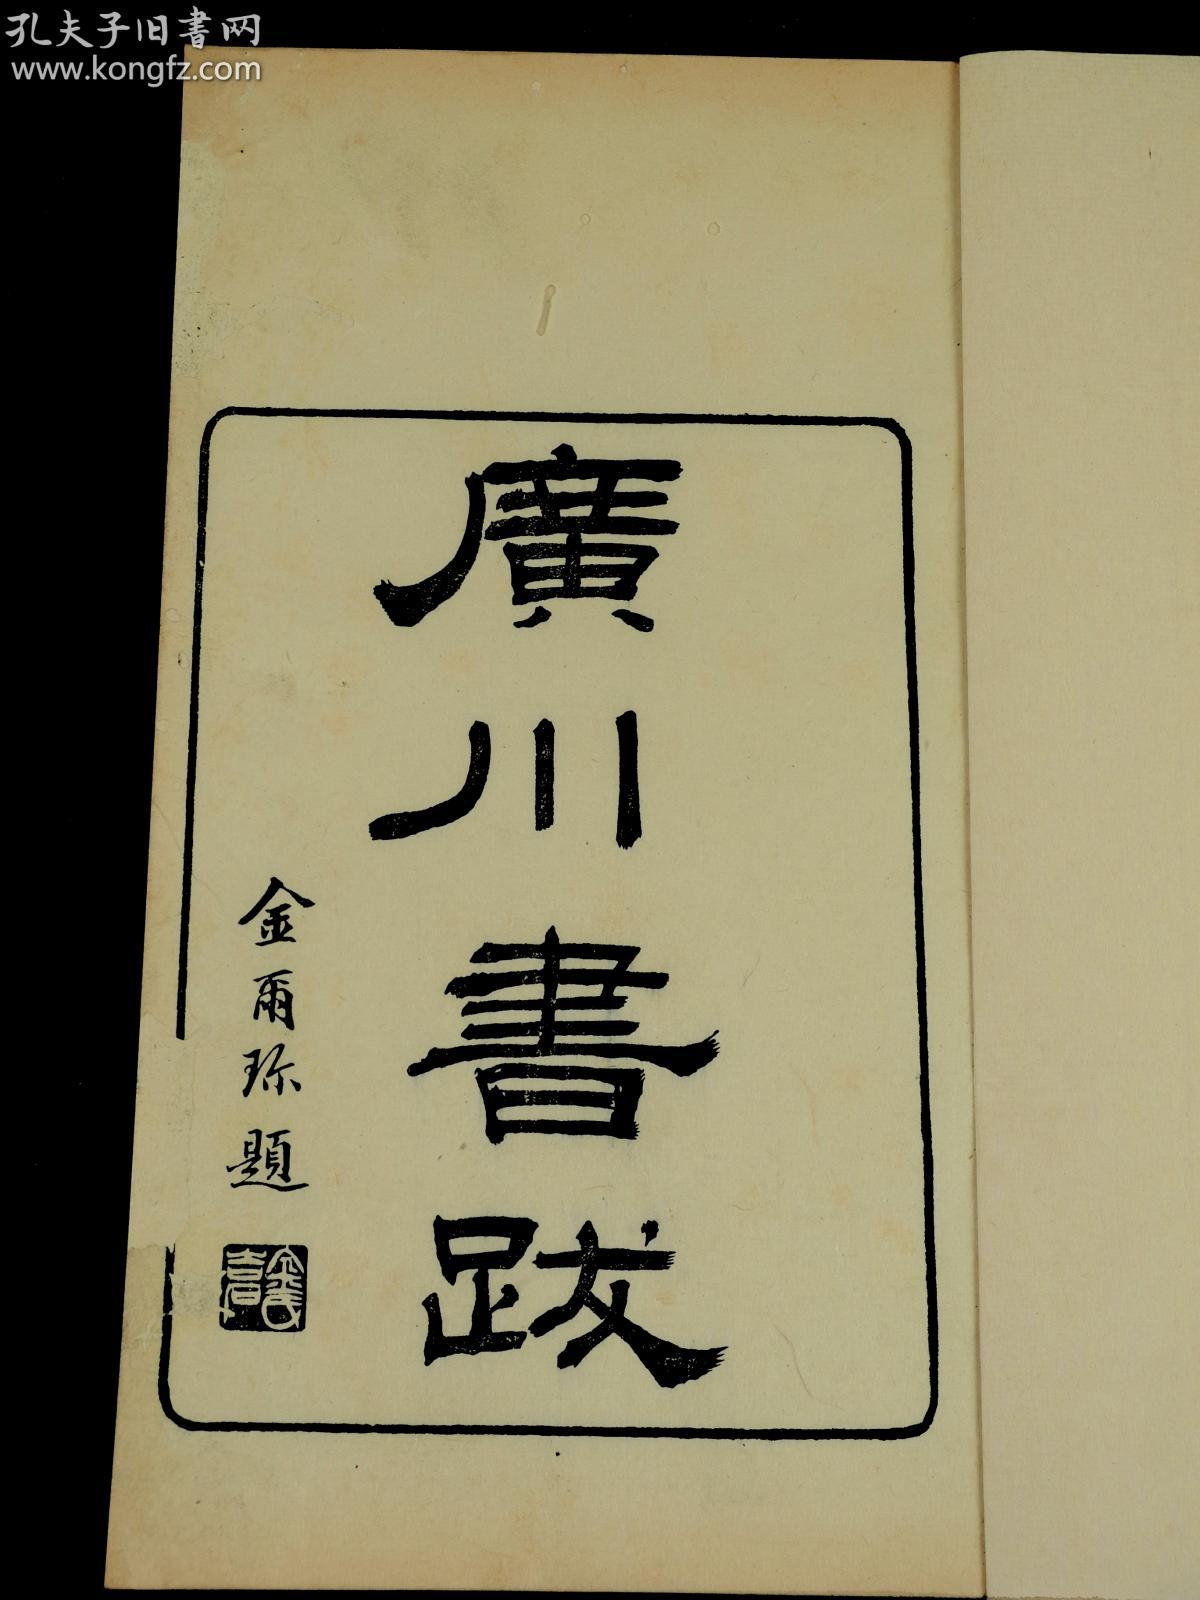 孔夫子旧書网
www.kongfz.com
廣川書跋
金爾珎題